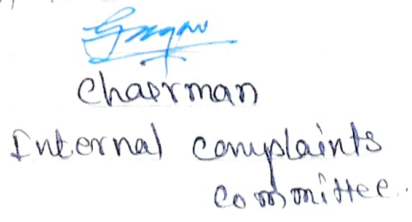 Chairman
Internal Complaints
Committee.